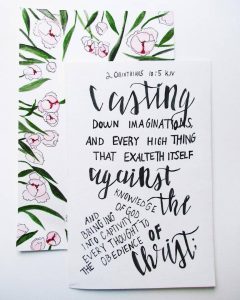 2 CORINTHIANS 10:5 KJV
Casting
DOWN IMAGINATIONS,
AND EVERY HIGH THING
THAT EXALTETH ITSELF
against
the
KNOWLEDGE
OF GOD,
AND
BRINGING
INTO CAPTIVITY
EVERY THOUGHT TO
THE OBEDIENCE OF
Christ;